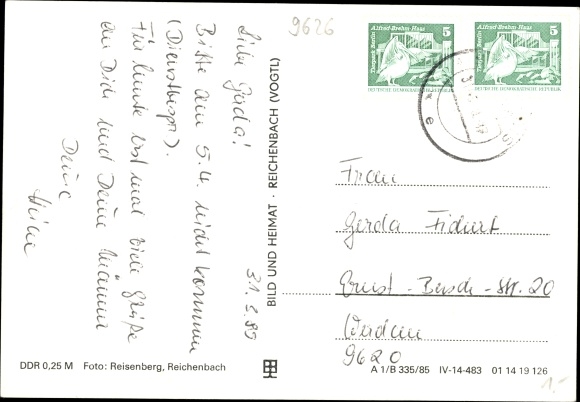 9626
Liebe Gerda!
Bitte am 5.4. nicht kommen
(Dienstbespr.).
Für heute erst mal viele Grüße
an Dich und Deine Männer
Deine
31.3.89
BILD UND HEIMAT · REICHENBACH (VOGTL)
Alfred-Brehm-Haus
5
Tierpark Berlin
DEUTSCHE DEMOKRATISCHE REPUBLIK
Alfred-Brehm-Haus
5
Tierpark Berlin
DEUTSCHE DEMOKRATISCHE REPUBLIK
Frau
Gerda
Ernst-Busch-Str. 20
Werdau
9620
DDR 0,25 M Foto: Reisenberg, Reichenbach
A 1/B 335/85 IV-14-483 01 14 19 126
1,-